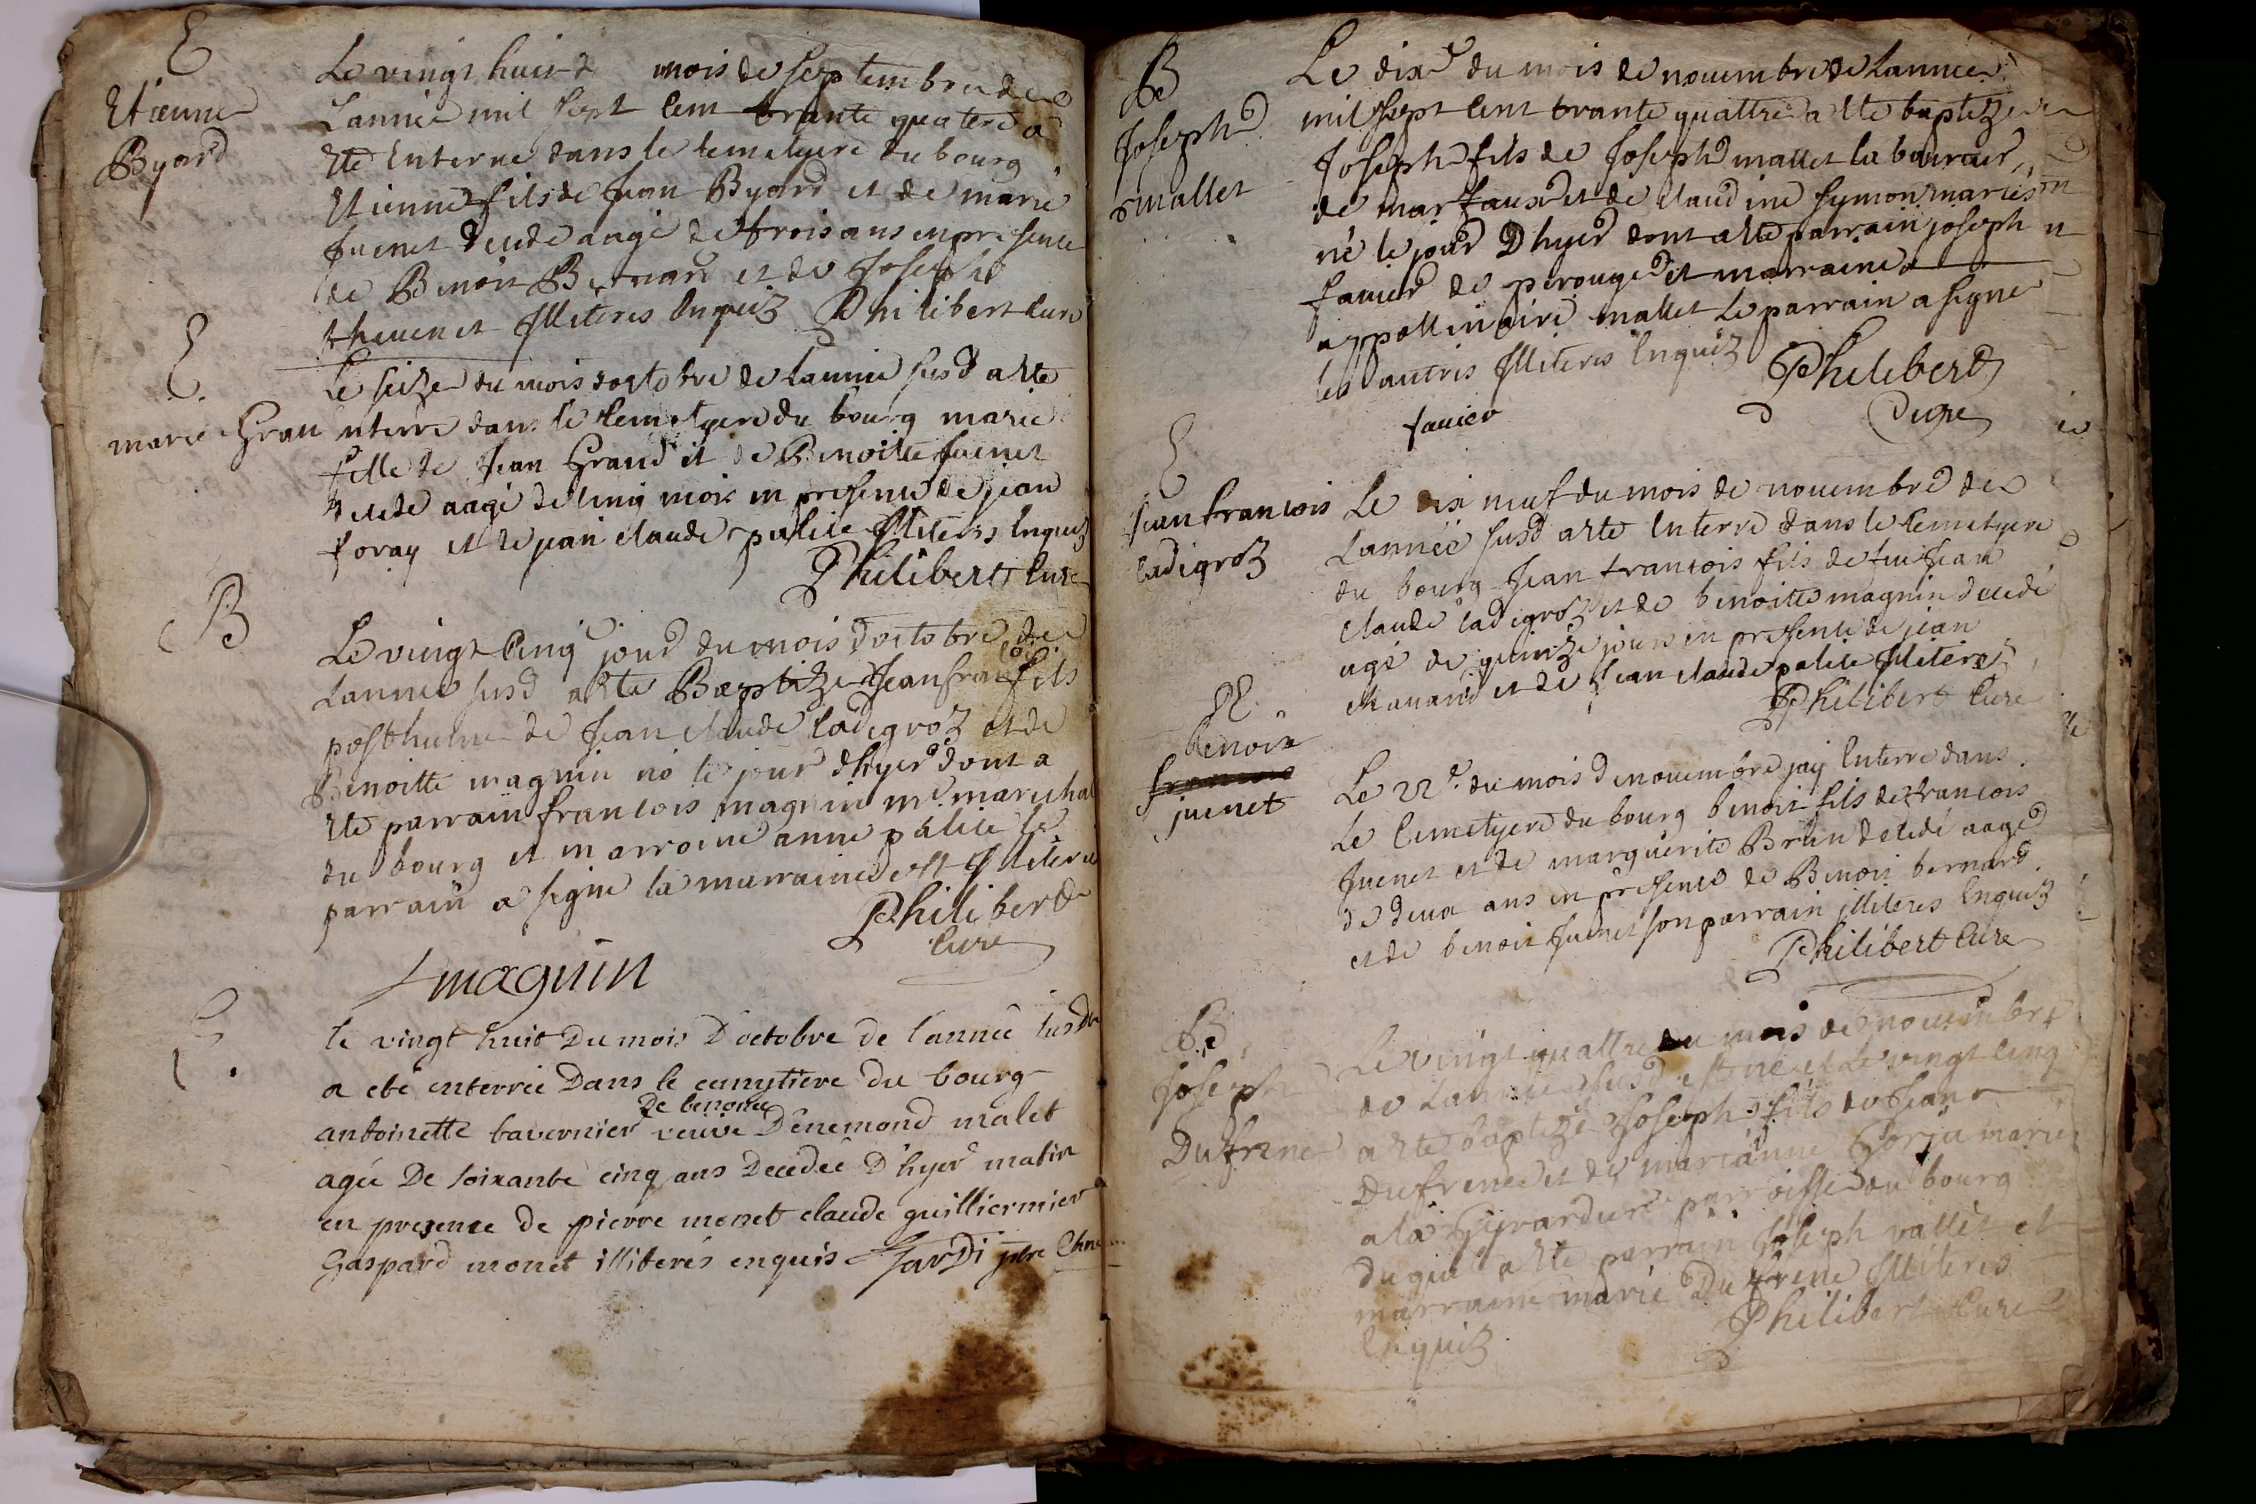 E
Etienne
Byard
Le vingt huit d mois de septembre de
Lannée mil sept cent trante quatere a
Ete Enterre dans le cemetyere du bourg
Etienne fils de Jean Byard et de marie
Juenet decede aagé de trois ans en presence
de Benoit Bernard et de Joseph
thevenet Illiteres Enquiz Philibert Curé
E
marie Gran
Le seize du mois doctobre de Lannee susd a Ete
enterre dans le cemetyere du bourg marie
fille de Jean Grand et de Benoitte Juenet
decede aagé de cinq mois en presence de jean
foray et de jean claude palice Illiteres Enquiz
Philibert Curé
B
Le vingt Cinq jour du mois doctobre de
Lannee susd a Ete Baptize Jean fran fils
posthume de Jean claude Cadigroz et de
Benoitte magnin né le jour dhyer dont a
Ete parrain francois magnin me marechal
du bourg et marraine anne palice le
parrain a signe la marraine est Illitere
Philibert
Curé
f magnin
E.
le vingt huit Du mois D'octobre de l'année susdte
a eté enterrée Dans le cemytiere du bourg
De benonce
antoinette tavernier veuve D'enemond malet
agée De soixante cinq ans Decedée D'hyer matin
en presence de pierre monet claude guilliermier
Gaspard monet illiterés enquis Sardi ptre
B
Joseph
mallet
Le dixe du mois de novembre de Lannee
mil sept cent trante quattre a Ete baptize
Joseph fils de Joseph mallet laboureur
de marfaux et de claudine symon mariés
né le jour Dhyer dont a Ete parrain joseph
favier de perouge et marraine
appollinaire mallet Le parrain a signe
les autres Illiteres Enquiz
Philibert
favier
Cure
E
Jean francois
Cadigroz
Le dix neuf du mois de novembre de
Lannée susd a Ete Enterre dans le Cemetyere
du bourg Jean francois fils de feu Jean
claude Cadigroz et de benoitte magnin decedé
agé de quinze jours en presence de jean
chanard et de Jean claude palice Illiteres
Philibert Curé
E.
benoit
juenet
Le 22e. du mois de novembre jay Enterre dans
Le Cemetyere du bourg benoit fils de francois
Juenet et de marguerite Brun decedé aagé
de deux ans en presence de Benoit bernard
et de benoit Juenet son parrain illiteres Enquiz
Philibert Cure
B
Joseph
Dufrene
Le vingt quattre du mois de novembre
de Lannee susd est né et Le vingt cinq
a Ete baptizé Joseph fils de Jean
Dufrene et de marianne Gorju mariés
a la Gyrardiere parroisse du bourg
duquel a Ete parrain Joseph vallet et
marraine marie Dufrene Illiteres
Enquiz
Philibert Curé